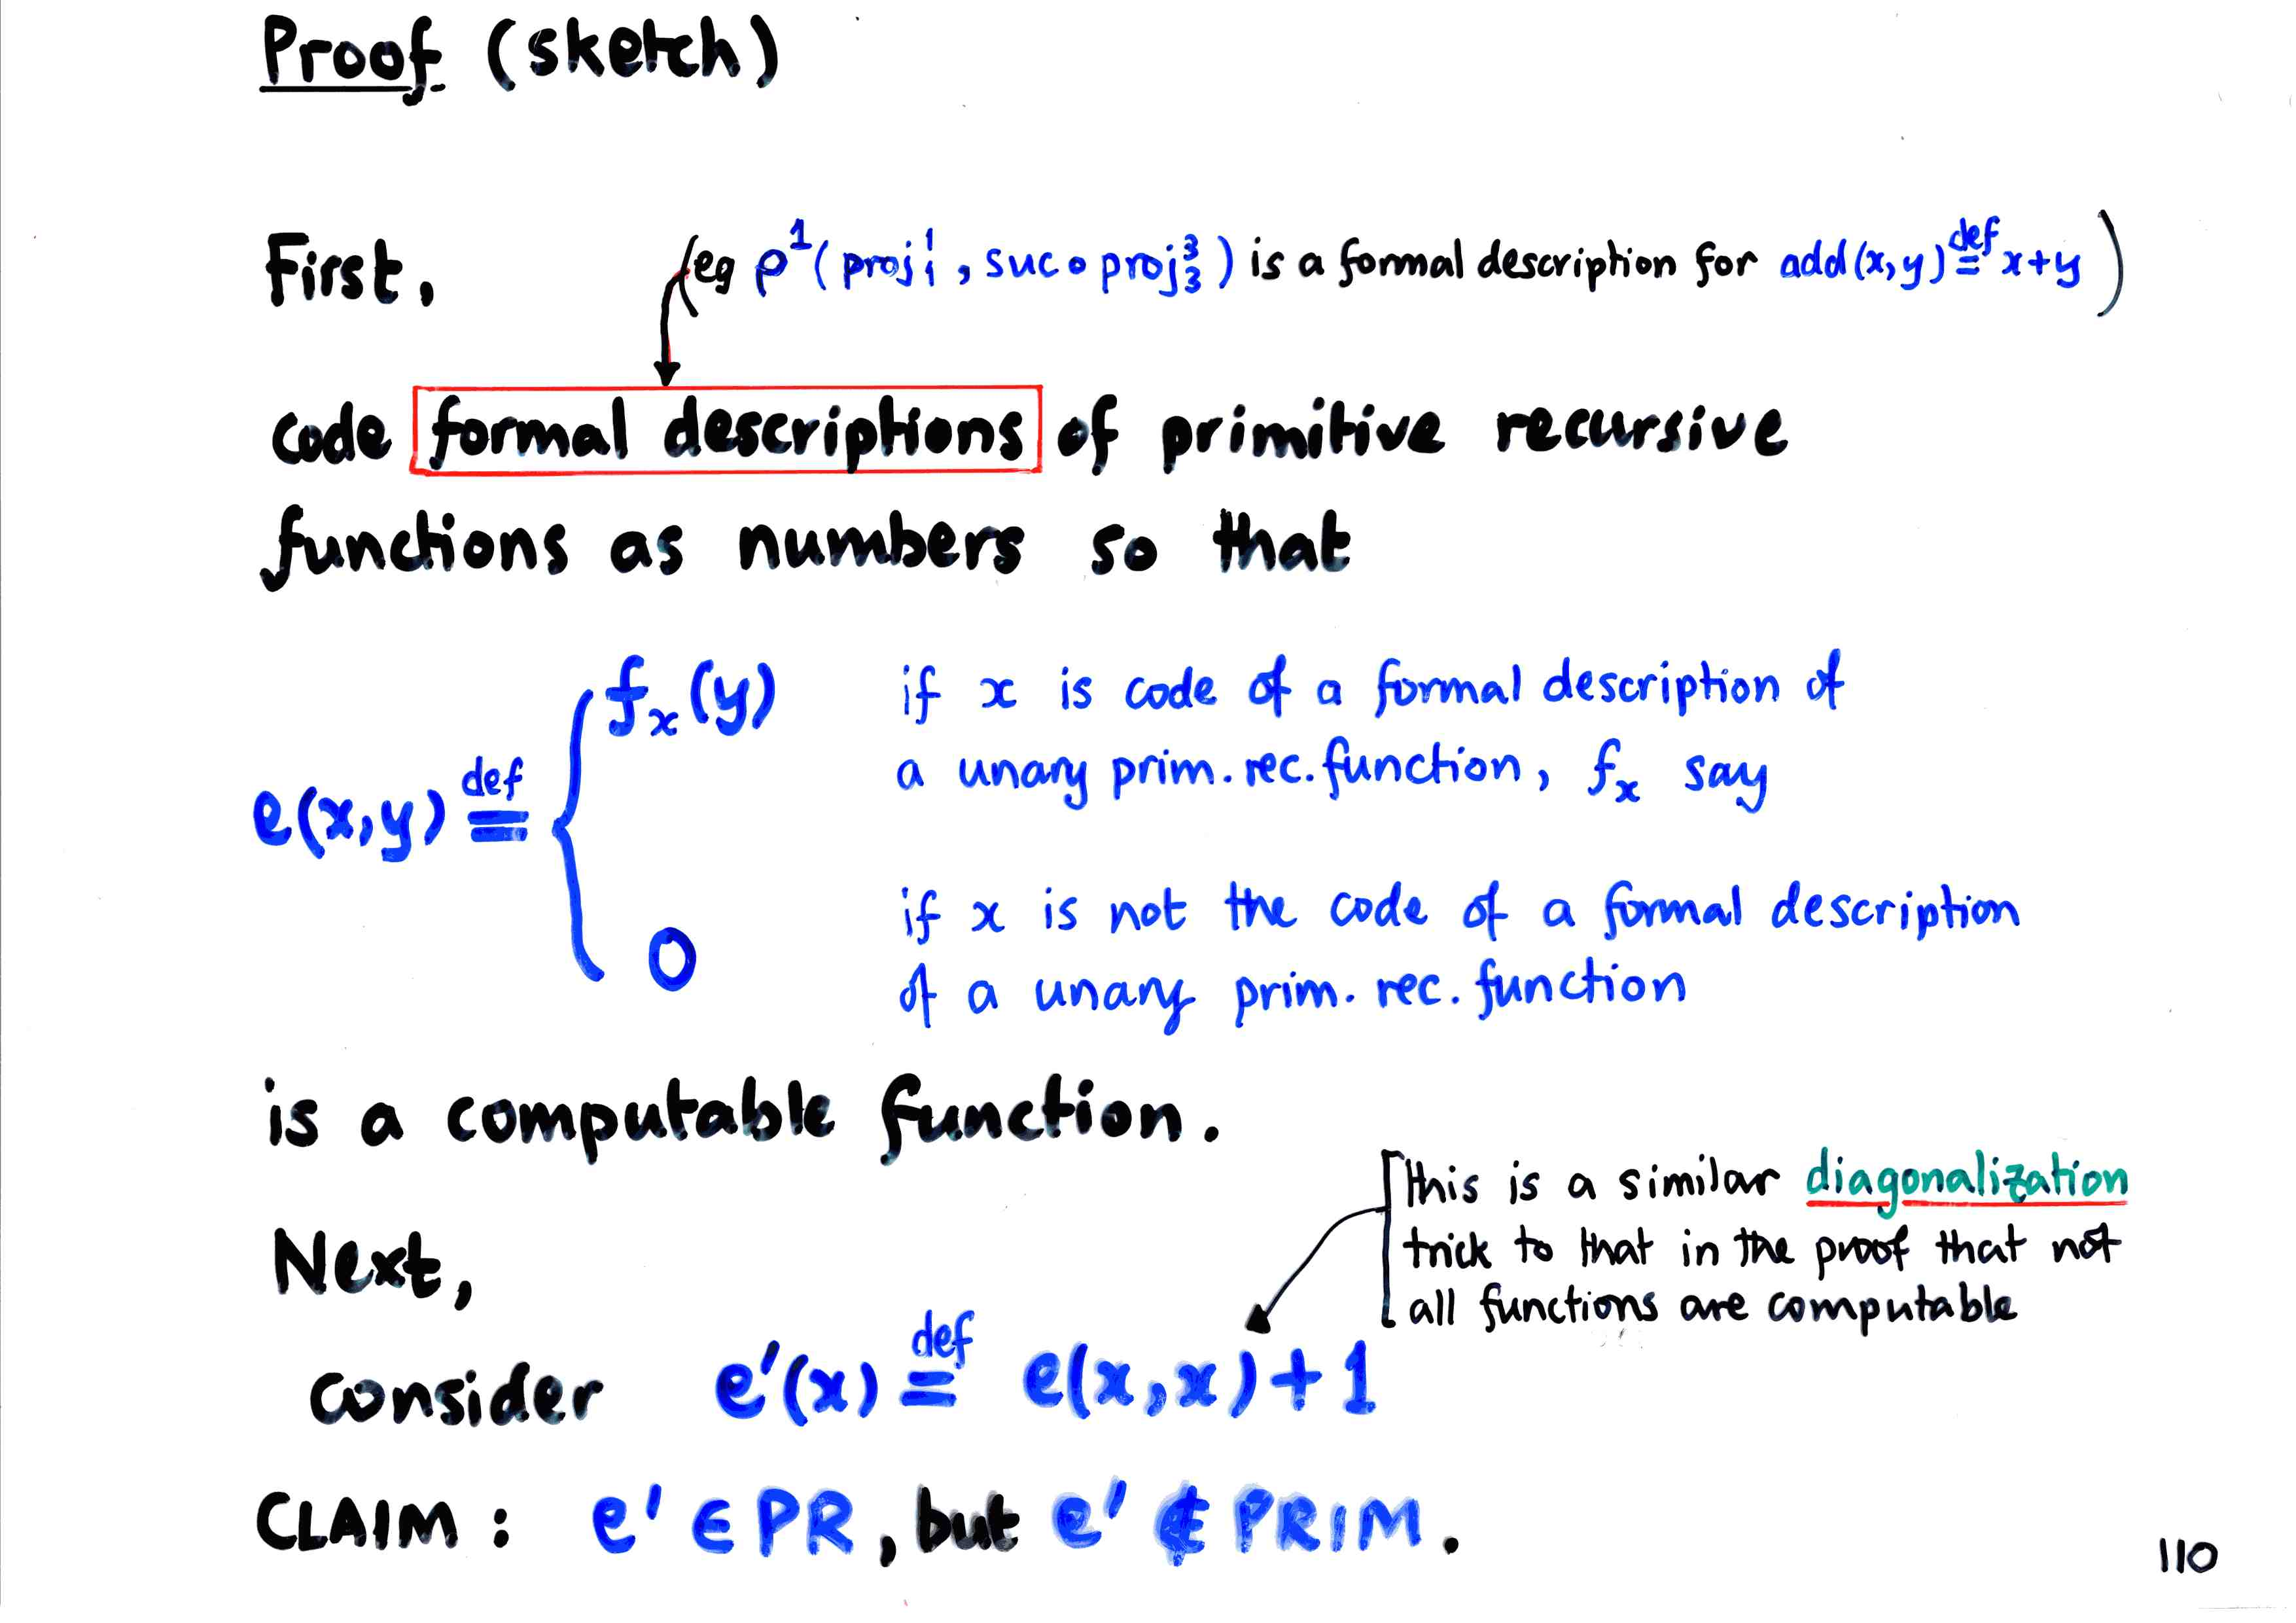 Proof (sketch)
First,
(eg ρ¹(proj¹₁, suc∘proj³₃) is a formal description for add(x,y) def= x+y)
code formal descriptions of primitive recursive
functions as numbers so that
f_x(y) if x is code of a formal description of
a unary prim. rec. function, f_x say
e(x,y) def= {
0 if x is not the code of a formal description
of a unary prim. rec. function
is a computable function.
[this is a similar diagonalization
trick to that in the proof that not
all functions are computable
Next,
consider e'(x) def= e(x,x)+1
CLAIM: e' ∈ PR, but e' ∉ PRIM.
110